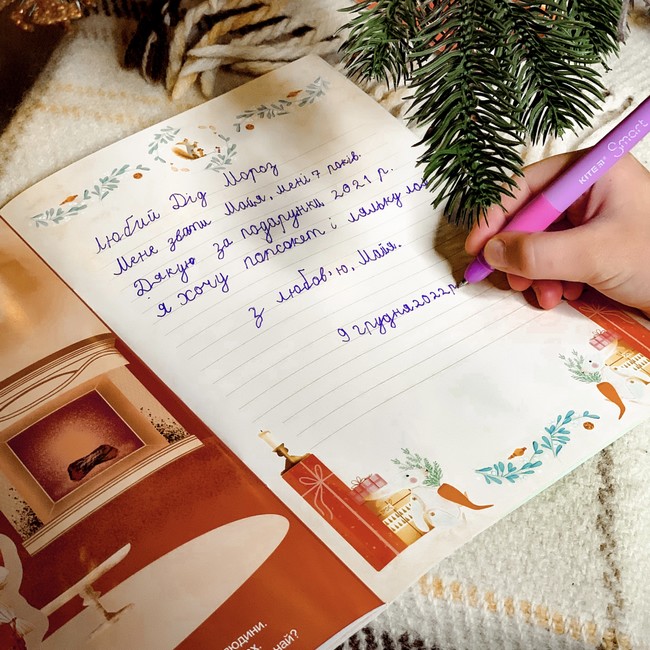 Любий Дід Мороз
Мене звати Майя, мені 7 років.
Дякую за подарунки 2021 р.
я хочу попокет і ляльку
З любов'ю, Майя.
9 грудня 2022р.
KITE
Smart
людини.
най?